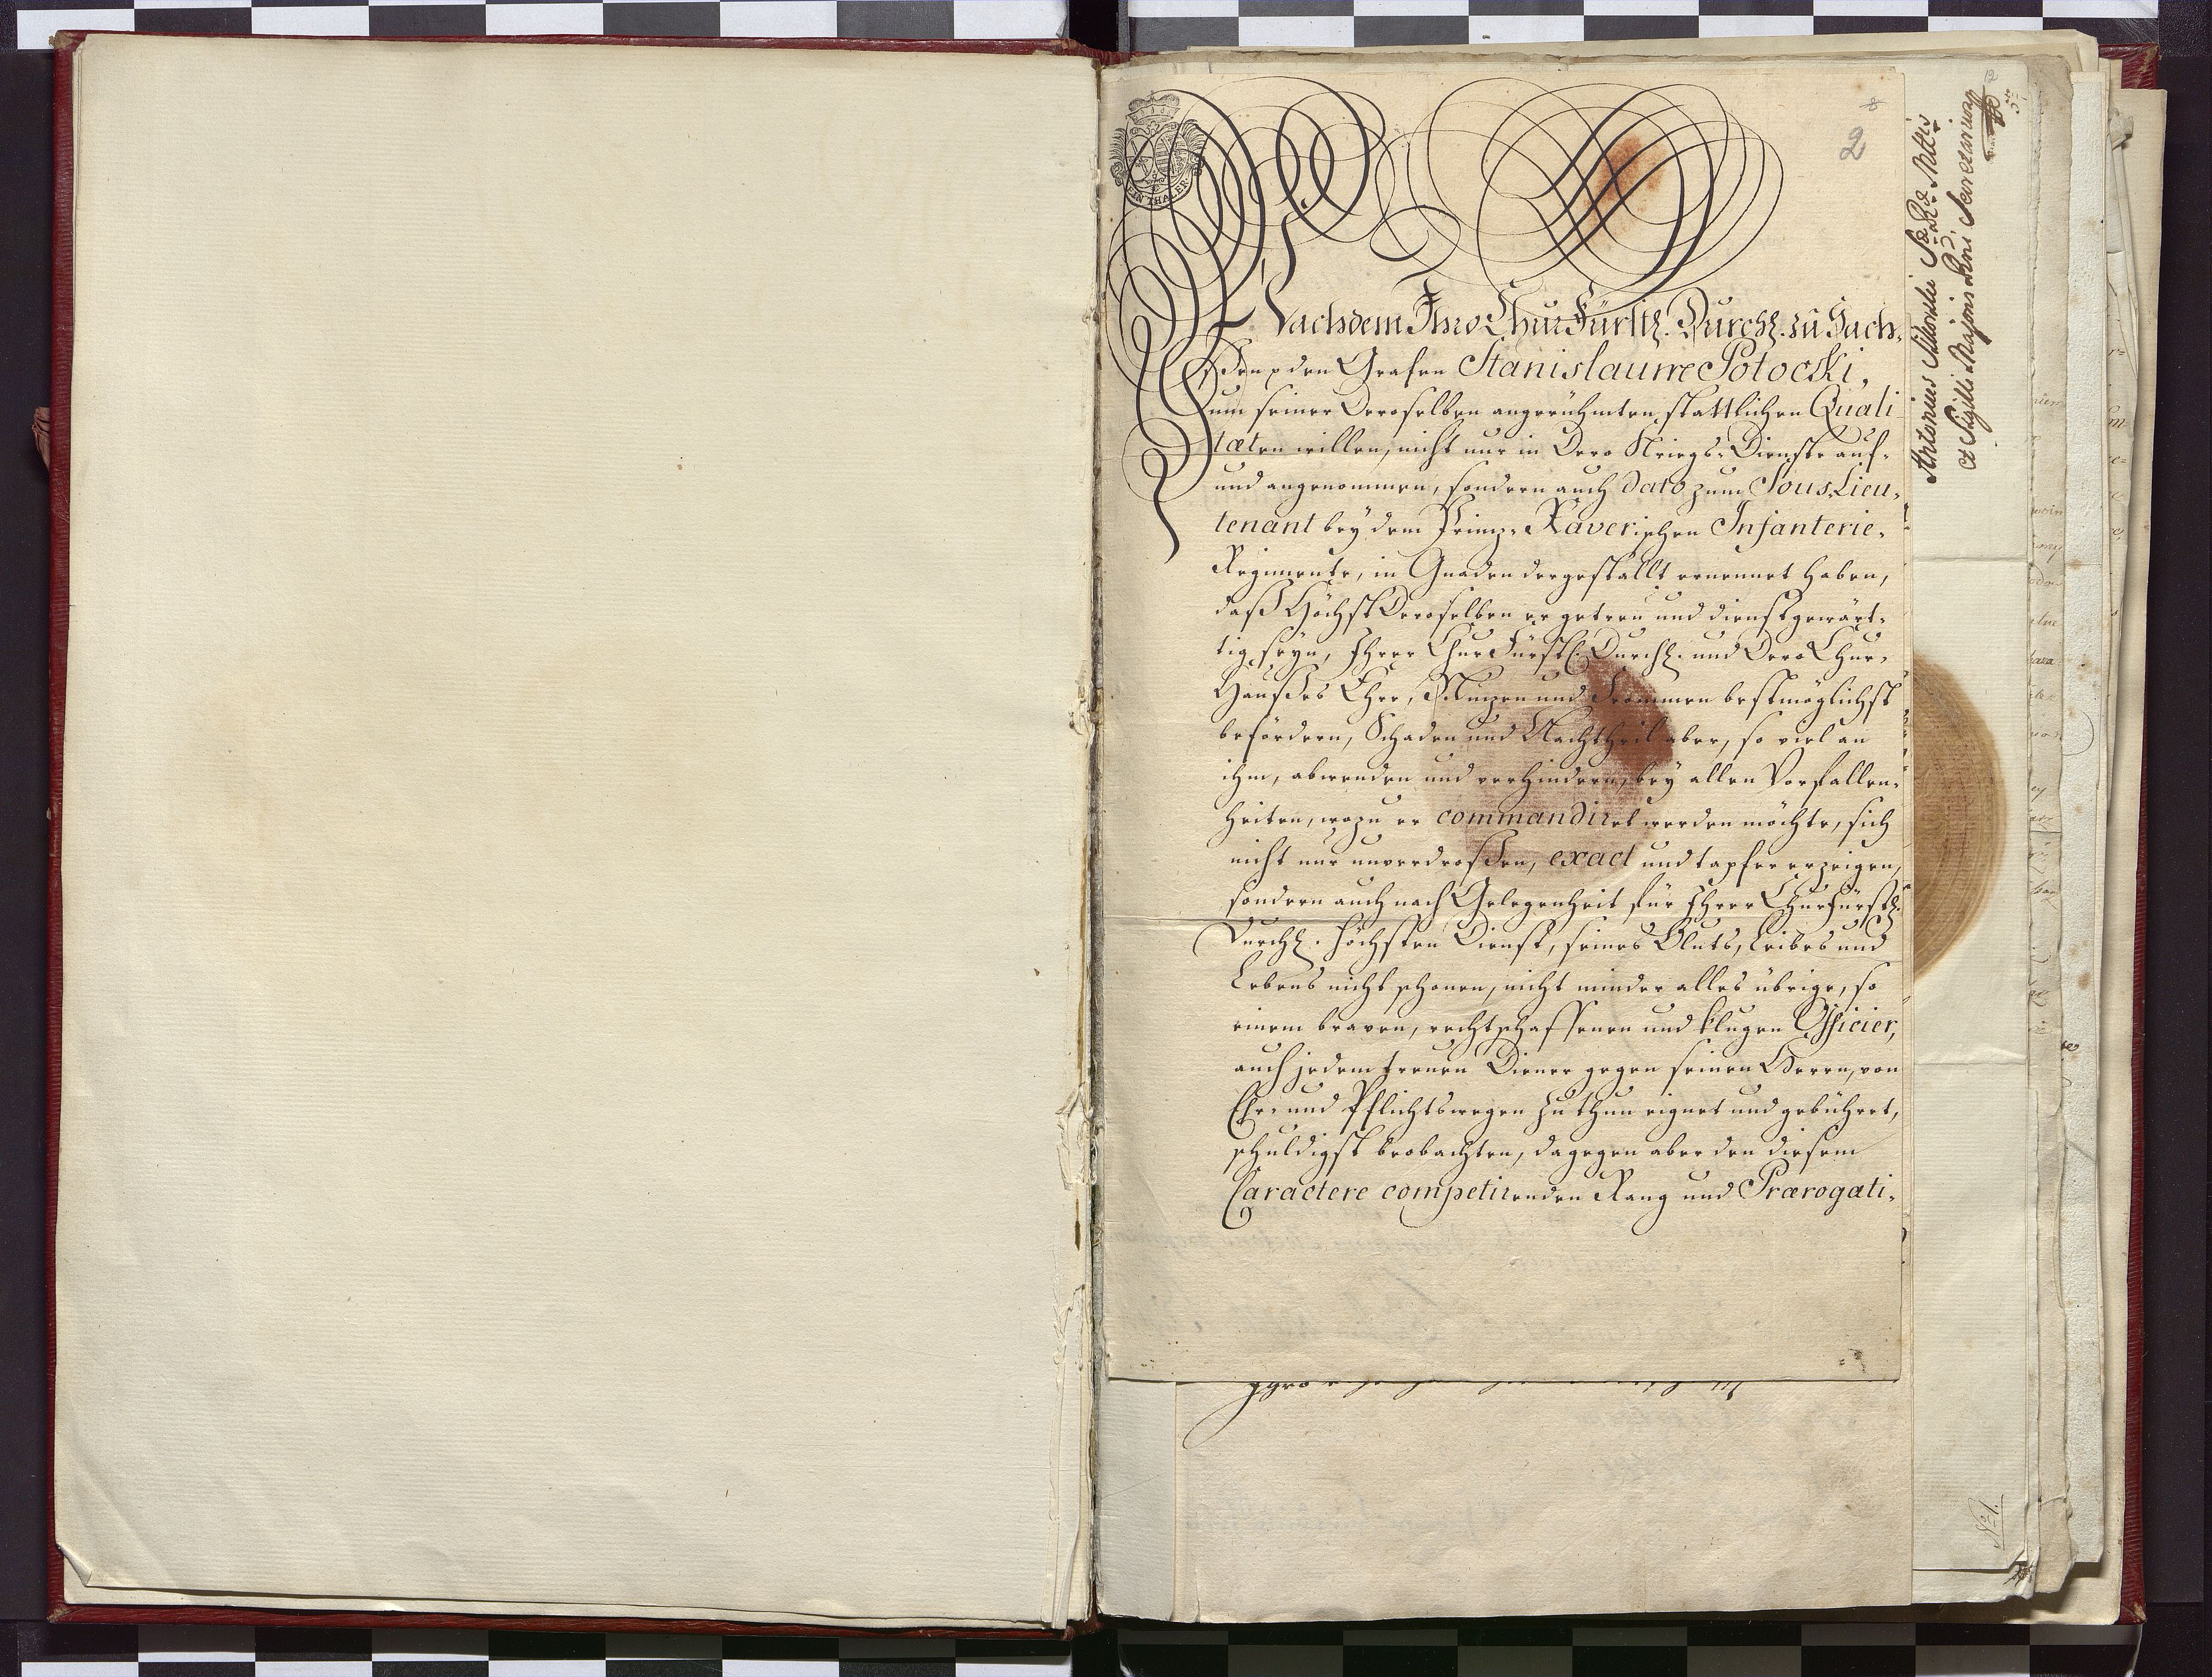 EIN THALER
2
Nachdem Ihro ChurFürstl. Durchl. zu Sach-
ßen p den Grafen Stanislaum Potocki,
um seiner Deroselben angerühmten stattlichen Quali
tæten willen, nicht nur in Dero Kriegs-Dienste auf-
und angenommen, sondern auch dato zum Sous-Lieu-
tenant bey dem Prinz-Xaverischen Infanterie-
Regimente, in Gnaden dergestallt ernennet haben,
daß HöchstDeroselben er getreu und dienstgewärt-
tig seyn, Ihrer ChurFürstl. Durchl. und Dero Chur-
Haußes Ehre, Nuzen und Frommen bestmöglichst
befördern, Schaden und Nachtheil aber, so viel an
ihm, abwenden und verhindern, bey allen Vorfallen-
heiten, wozu er commandiret werden möchte, sich
nicht nur unverdroßen, exact und tapfer erzeigen,
sondern auch nach Gelegenheit für Ihrer Churfürstl.
Durchl. höchsten Dienst, seines Bluts, Leibes und
Lebens nicht schonen, nicht minder alles übrige, so
einem braven, rechtschaffenen und klugen Officier,
auch jedem treuen Diener gegen seinen Herrn, von
Ehr- und Pflichtswegen zu thun eignet und gebühret,
schuldigst beobachten, dagegen aber den diesem
Caractere competirenden Rang und Prærogati-
Antonius Sikorski S. R. Mttis
et Sigilli Majoris Rni Secretarius
12
No 1.